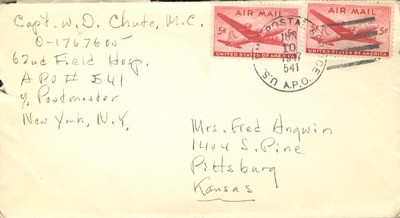 Capt. W. D. Chute, M.C.
O-1767605
62nd Field Hosp.
A P O # 541
c/o Postmaster
New York, N.Y.
AIR MAIL
5¢
UNITED STATES OF AMERICA
AIR MAIL
5¢
UNITED STATES OF AMERICA
U.S. POSTAL SERVICE
10
1947
541
A.P.O.
Mrs. Fred Angwin
1404 S. Pine
Pittsburg
Kansas